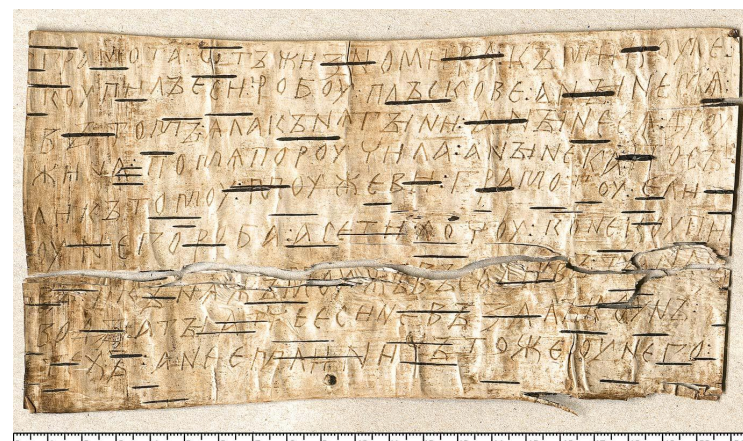 ГРАМОТА:ѠТЪЖИЗНОМИРА:КЪМИКОУЛЕ:
КОУПИЛЪЕСИ:РОБОУ:ПЛЪСКОВЕ:АНЫНЕМѦ:
ВЪТОМЪ:ѦЛАКЪНѦГЫНИ:АНЫНЕСѦДРОУ
ЖИНА:ПОМѦПОРОУЧИЛА:АНЫНЕКА:ПОСЪ
ЛИКЪТОМОУ:МОУЖЕВИ:ГРАМОТОУ:ЕЛИ
ОУНЕГОРОБА:АСЕТИХОЧОУ:КОНЕКОУПИ
ВЪ:ИКЪНѦЖЪМОУЖЪВЪСАДИВЪТАНАСЪ
ВОДЫ:АТЫАТЧЕЕСИНЕВЪЗАЛЪКОУНЪ:
ТЕХЪ:АНЕЕМЛИ:НИЧЪТОЖЕОУНЕГО: